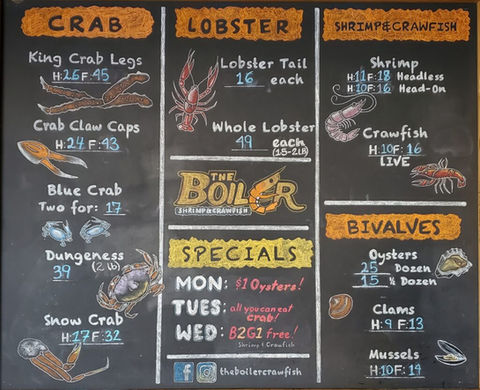 CRAB
King Crab Legs
H:26 F:45
Crab Claw Caps
H:24 F:43
Blue Crab
Two for: 17
Dungeness
39 (2 lb)
Snow Crab
H:17 F:32
LOBSTER
Lobster Tail
16 each
Whole Lobster
49 each
(1.5-2lb)
THE
BOILER
SHRIMP & CRAWFISH
SPECIALS
MON: $1 Oysters!
TUES: all you can eat
crab!
WED: B2G1 free!
Shrimp & Crawfish
theboilercrawfish
SHRIMP & CRAWFISH
Shrimp
H:11 F:18 Headless
H:10 F:16 Head-On
Crawfish
H:10 F:16
LIVE
BIVALVES
Oysters
25 Dozen
15 ½ Dozen
Clams
H:9 F:13
Mussels
H:10 F:19